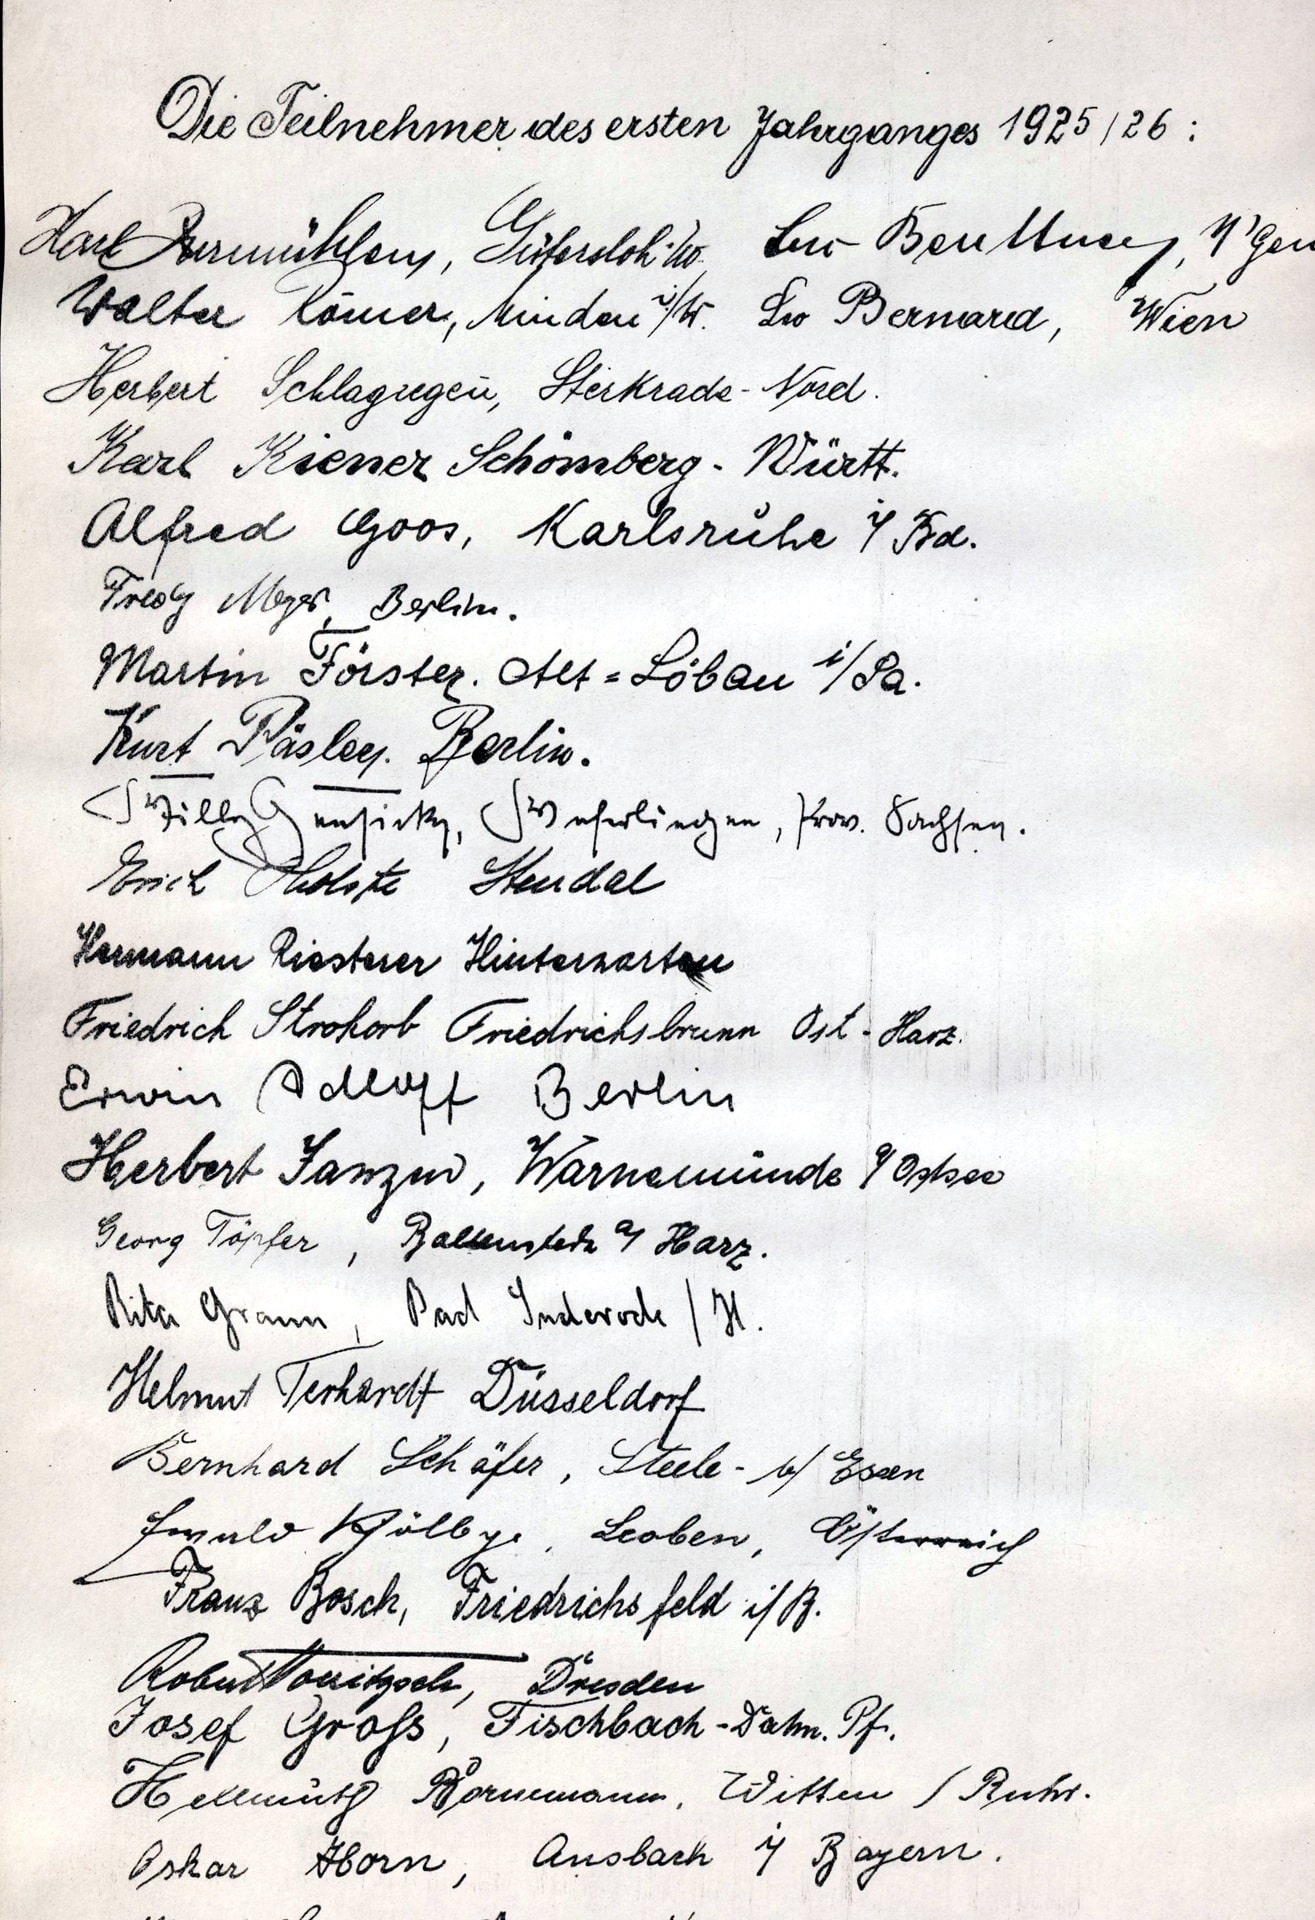 Die Teilnehmer des ersten Jahrganges 1925/26:
Karl Avermühlen, Gütersloh i/W. Leo
Walter Römer, Minden i/W. Leo Bernard, Wien
Herbert Schlagregen, Sterkrade-Nord.
Karl Kiener Schömberg-Württ.
Alfred Goos, Karlsruhe i/Bd.
Fredy Meyer, Berlin.
Martin Förster. Alt=Löbau i/Sa.
Kurt Päsler. Berlin.
Willy Gensicky, Weferlingen, Prov. Sachsen.
Erich Holste Stendal
Hermann Riesterer Hinterzarten
Friedrich Strohorb Friedrichsbrunn Ost-Harz.
Erwin Adloff Berlin
Herbert Janzen, Warnemünde a/Ostsee
Georg Töpfer, Ballenstedt a/Harz.
Rita Gramm, Bad Suderode/H.
Helmut Terhardt Düsseldorf
Bernhard Schäfer, Steele- b/Essen
Ewald Leoben, Österreich
Franz Bosch, Friedrichsfeld i/B.
Robert Dresden
Josef Groß, Fischbach-Dahn. Pf.
Hellmuth Bornemann, Witten / Ruhr.
Oskar Horn, Ansbach i/Bayern.